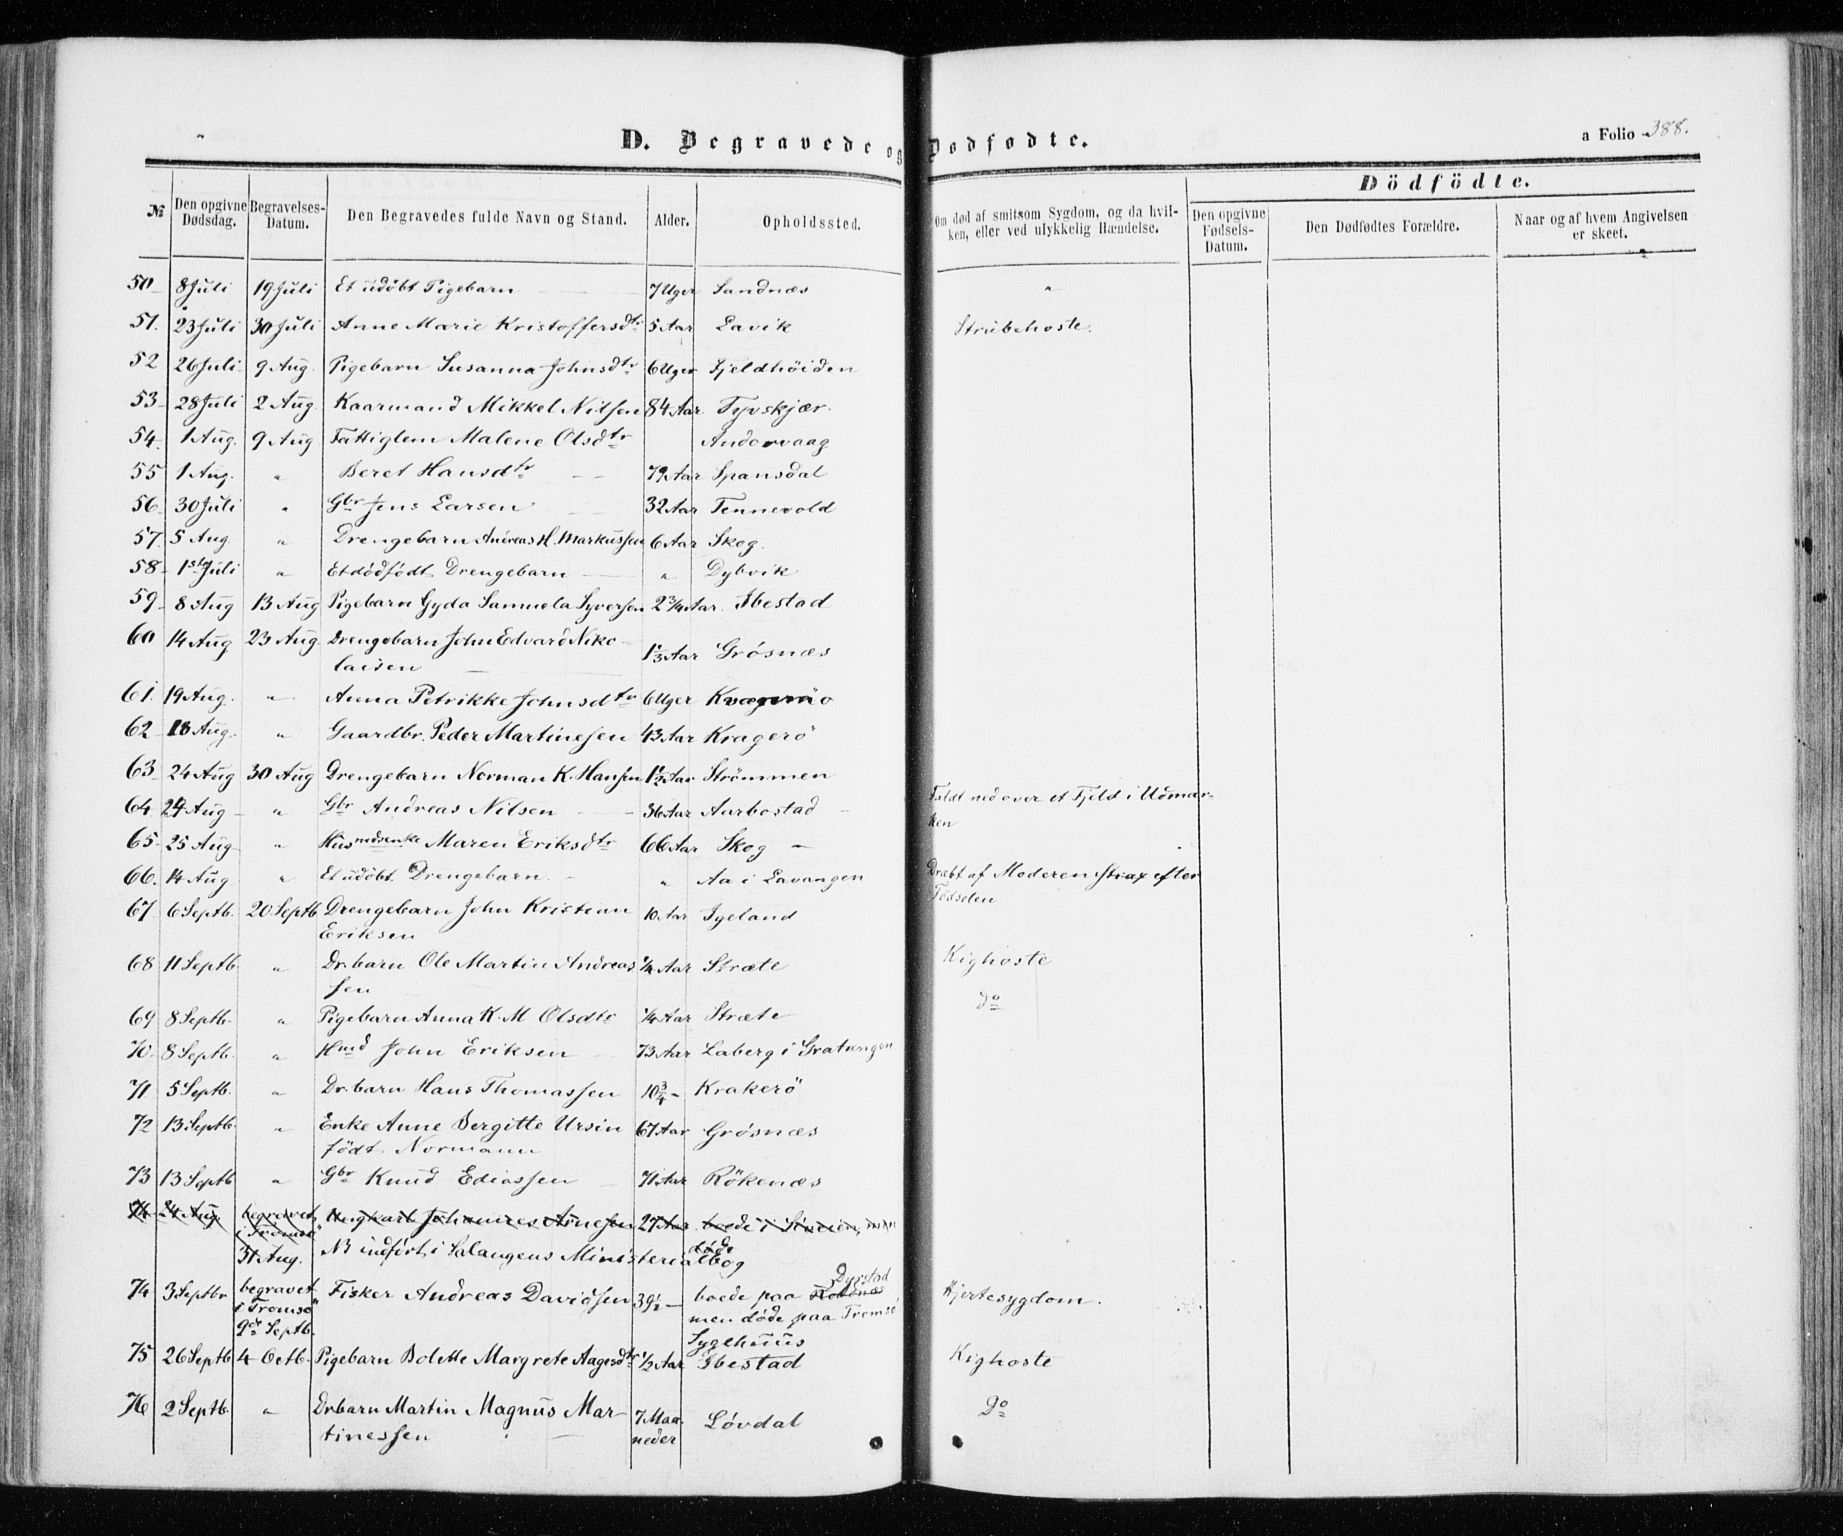 D. Begravede og Dødfødte.
a Folio 388.
Dödfödte.
№ Den opgivne Dødsdag. Begravelses-Datum. Den Begravedes fulde Navn og Stand. Alder. Opholdssted. Om død af smitsom Sygdom, og da hvilken, eller ved ulykkelig Hændelse. Den opgivne Fødsels-Datum. Den Dødfødtes Forældre. Naar og af hvem Angivelsen er skeet.
50 8 Juli 19 Juli Et udøbt Pigebarn 7 Uger Sandnæs "
51. 23 Juli 30 Juli Anne Marie Kristoffersdtr 5 Aar Lavik Strubehoste.
52 26 Juli 9 Aug. Pigebarn Susanna Johnsdtr 6 Uger Fjeldhöiden
53 28 Juli 2 Aug. Kaarmand Mikkel Nilsen 84 Aar Tyvskjær.
54 1 Aug. 9 Aug Fattiglem Malene Olsdtr Andervaag
55 1 Aug. " Beret Hansdtr 79 Aar Spansdal
56 30 Juli " Gbr Jens Larsen 32 Aar Tennevold
57. 5 Aug " Drengebarn Andreas H. Markussen 6 Aar Skog.
58 1ste Juli " Et dödfödt Drengebarn " Dybvik
59 8 Aug 13 Aug Pigebarn Gyda Samuela Syversen 2 3/4 Aar. Ibestad
60 14 Aug 23 Aug. Drengebarn John Edvard Niko-
laisen 1 1/3 Aar Grøsnæs
61. 19 Aug. " Anna Petrikke Johnsdtr 6 Uger
62 18 Aug. " Gaardbr. Peder Martinesen 43 Aar Kragerö
63 24 Aug 30 Aug Drengebarn Norman K. Hansen 1 1/2 Aar Strömmen
64 24 Aug " Gbr Andreas Nilsen 36 Aar Aarbostad Faldt ned over et Fjeld i Udmar-
ken
65. 25 Aug " Husmdsenke Maren Eriksdtr 66 Aar Skog
66. 14 Aug " Et udøbt Drengebarn. " Aa i Lavangen Dræbt af Moderen strax efter
Födselen
67 6 Septb. 20 Septb Drengebarn John Kristian
Eriksen 10 Aar Igeland
68 11 Septb " Dr.barn Ole Martin Andreas
sen 1/4 Aar Stræte Kighoste
69 8 Septb. " Pigebarn Anna K. M Olsdtr 1/4 Aar Stræte do
70. 8 Septb. " Hmd John Eriksen 73 Aar Laberg i Gratangen
71 5 Septb. " Dr.barn Hans Thomassen 10 3/4 - Krakerö
72 13 Septb. " Enke Anne Bergitte Ursin
födt Normann 67 Aar Grøsnæs
73 13 Septb " Gbr Knud Ediassen 71 Aar Rökenæs
74 24 Aug. begravet
i Tromsö
31 Aug. Ungkarl Johannes Arnesen 27 Aar boede i
døde
NB indfört i Salangens Ministerialbog
74 3 Septbr begravet
i Tromsö
9de Septb. Fisker Andreas Davidsen 39 1/2 - boede paa Dyrstad
men døde paa Tromsø
Sygehuus Hjertesygdom.
75 26 Septb 4 Octb. Pigebarn Bolette Margrete Aagesdtr 1/2 Aar Ibestad Kighoste
76 2 Septb. " Dr.barn Martin Magnus Mar-
tinessen 7 Maa-
neder Lövdal Do